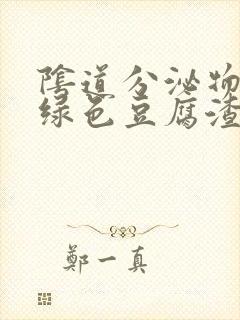 陰道分泌物
绿色豆腐渣
鄭一真